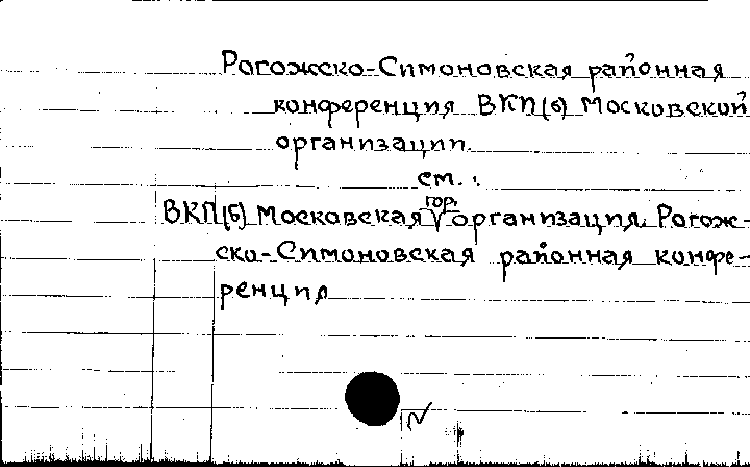 Рогожско-Симоновская районная
конференция ВКП(б) Московской
организации
см.:
ВКП(б) Московская гор. организация. Рогож-
ско-Симоновская районная конфе-
ренция